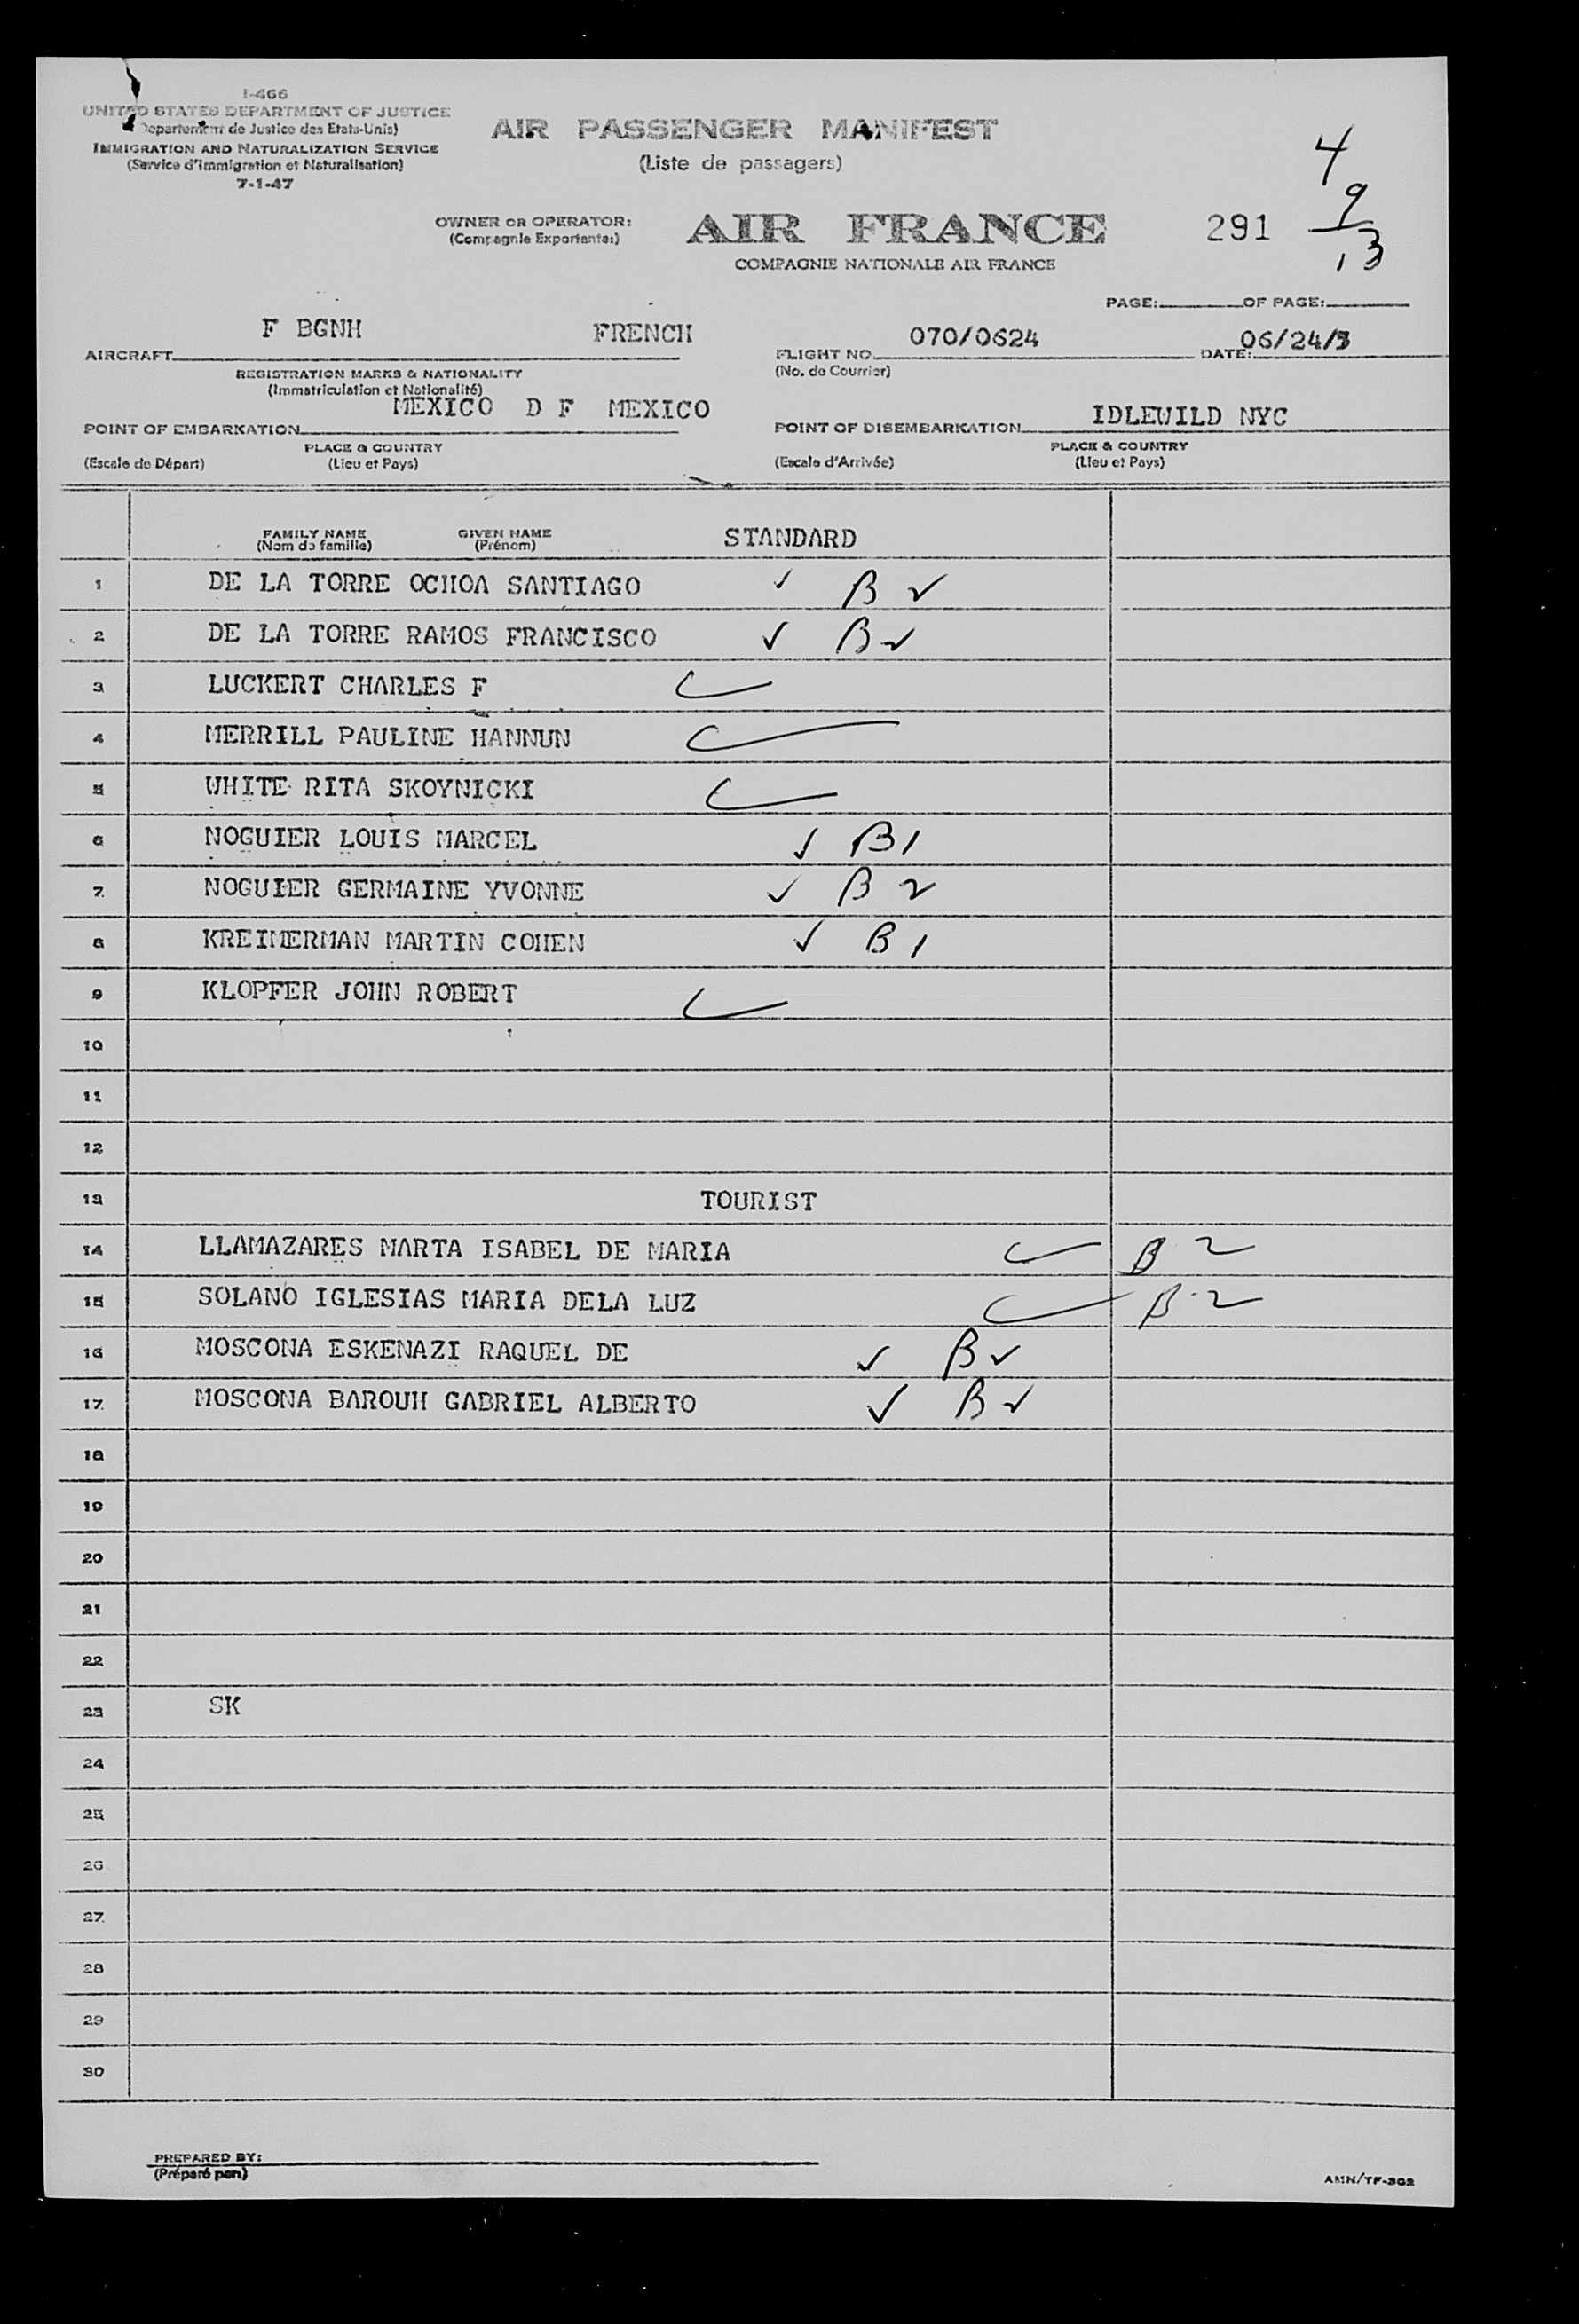 I-466
UNITED STATES DEPARTMENT OF JUSTICE
(Departement de Justice des Etats-Unis)
IMMIGRATION AND NATURALIZATION SERVICE
(Service d'Immigration et Naturalisation)
7-1-47
AIR PASSENGER MANIFEST
(Liste de passagers)
4
9
13
OWNER OR OPERATOR: AIR FRANCE 291
(Compagnie Exportante:)
COMPAGNIE NATIONALE AIR FRANCE
PAGE: OF PAGE:
AIRCRAFT F BGNH FRENCH
REGISTRATION MARKS & NATIONALITY
(Immatriculation et Nationalité)
FLIGHT NO. 070/0624 DATE: 06/24/3
(No. de Courrier)
POINT OF EMBARKATION MEXICO D F MEXICO
PLACE & COUNTRY
(Escale de Départ) (Lieu et Pays)
POINT OF DISEMBARKATION IDLEWILD NYC
PLACE & COUNTRY
(Escale d'Arrivée) (Lieu et Pays)
FAMILY NAME GIVEN NAME STANDARD
(Nom de famille) (Prénom)
1 DE LA TORRE OCHOA SANTIAGO ✓ B ✓
2 DE LA TORRE RAMOS FRANCISCO ✓ B ✓
3 LUCKERT CHARLES F ✓
4 MERRILL PAULINE HANNUN ✓
5 WHITE RITA SKOYNICKI ✓
6 NOGUIER LOUIS MARCEL ✓ B1
7 NOGUIER GERMAINE YVONNE ✓ B 2
8 KREIMERMAN MARTIN COHEN ✓ B 1
9 KLOPFER JOHN ROBERT ✓
10
11
12
13 TOURIST
14 LLAMAZARES MARTA ISABEL DE MARIA ✓ B 2
15 SOLANO IGLESIAS MARIA DELA LUZ ✓ B-2
16 MOSCONA ESKENAZI RAQUEL DE ✓ B ✓
17 MOSCONA BAROUH GABRIEL ALBERTO ✓ B ✓
18
19
20
21
22
23 SK
24
25
26
27
28
29
30
PREPARED BY:
(Préparé par)
AMN/TF-302